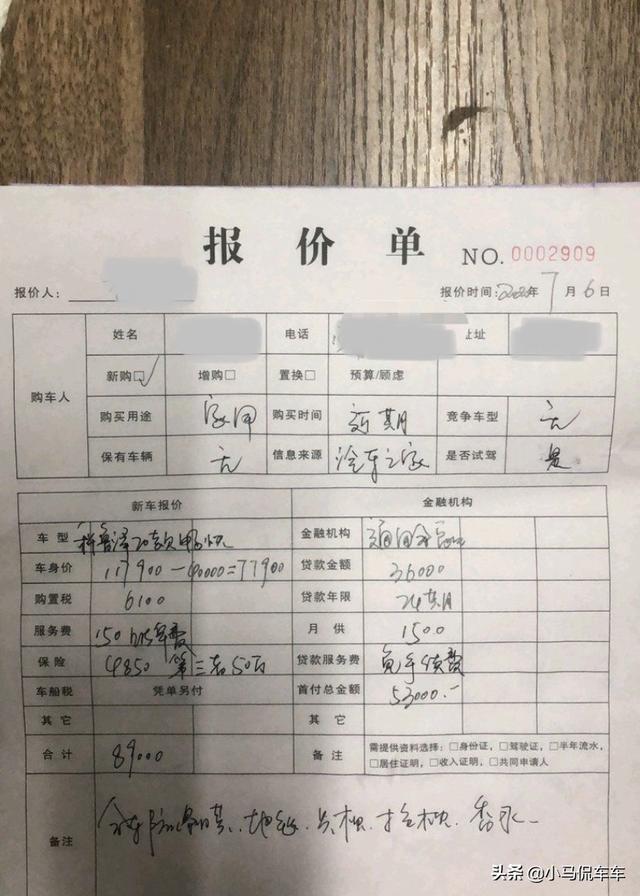 报价单 NO. 0002909
报价人： 报价时间：2020年7月6日
购车人
姓名 电话 址
新购☑ 增购□ 置换□ 预算/顾虑
购买用途 家用 购买时间 近期 竞争车型 无
保有车辆 无 信息来源 汽车之家 是否试驾 是
新车报价 金融机构
车型 科鲁泽20款 金融机构 通用金融
车身价 117900-40000=77900 贷款金额 36000
购置税 6100 贷款年限 24期
服务费 150 月供 1500
保险 4850 第三者50万 贷款服务费 免手续费
车船税 凭单另付 首付总金额 53000.-
其它 其它
合计 89000 备注 需提供资料选择：□身份证，□驾驶证，□半年流水，
□居住证明，□收入证明，□共同申请人
备注 全车防爆膜、地毯、头枕、抱枕、香水
头条 @小马侃车车